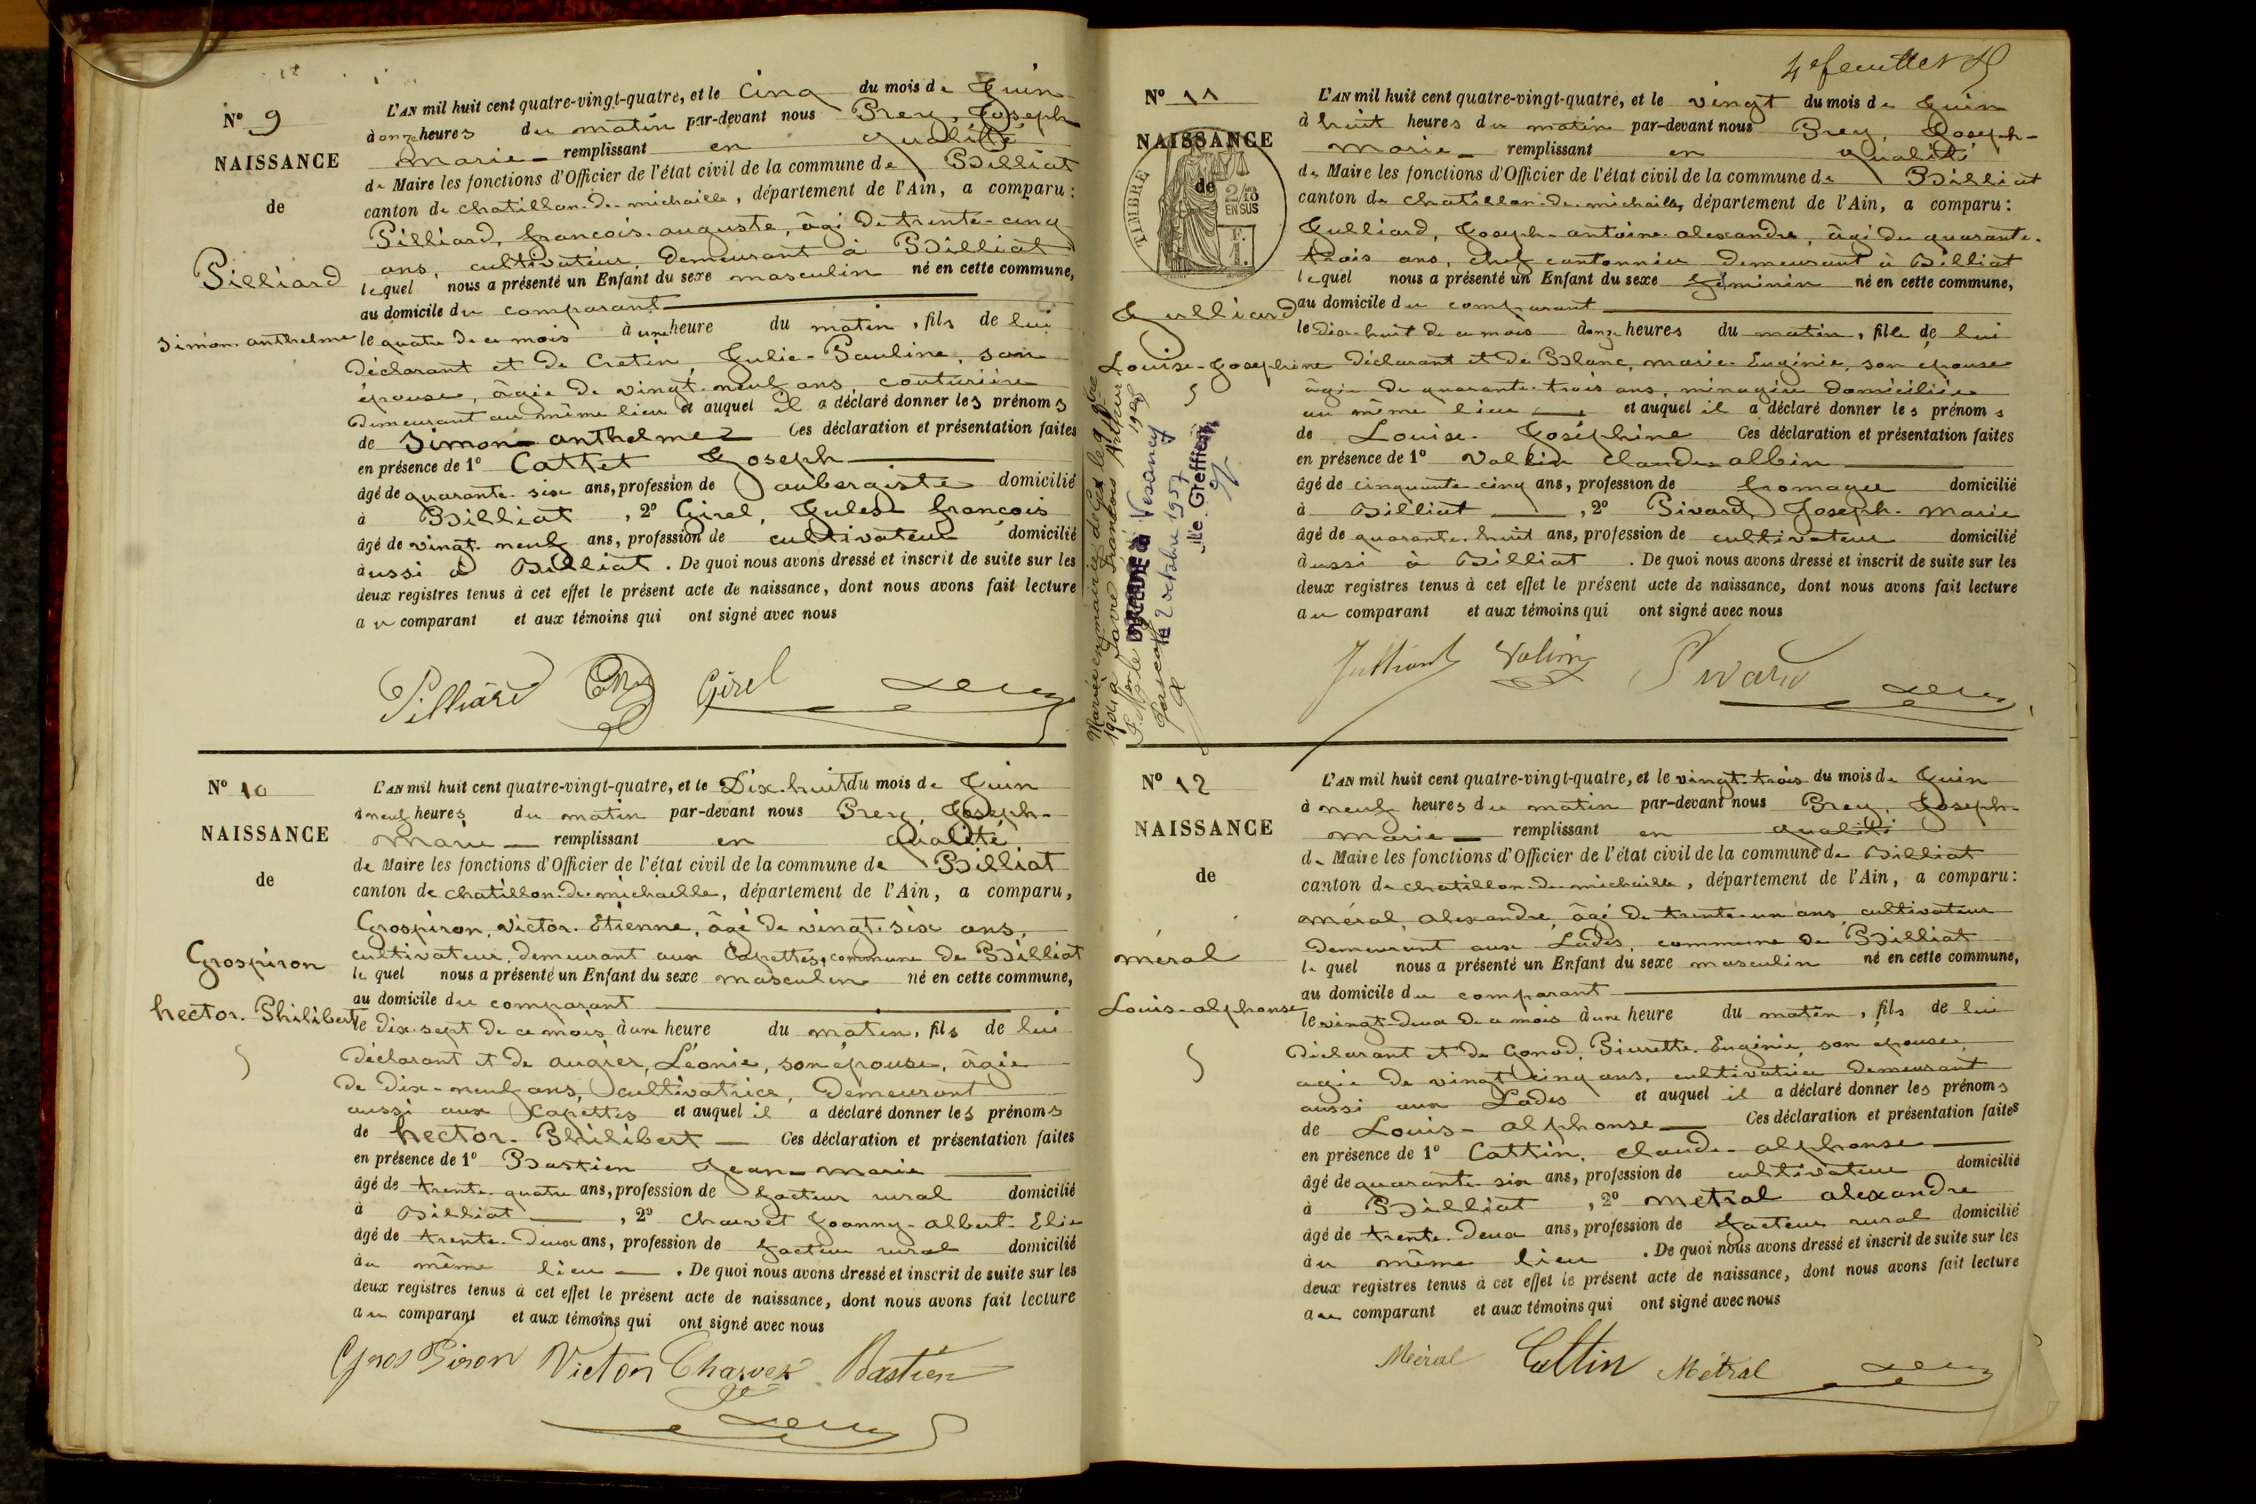 N° 9
NAISSANCE
de
Pilliard
Simon-anthelme
L'AN mil huit cent quatre-vingt-quatre, et le Cinq du mois de Juin
à onze heures du matin par-devant nous Prey, Joseph
marie remplissant en qualité
de Maire les fonctions d'Officier de l'état civil de la commune de Billiat
canton de chatillon-de-michaille, département de l'Ain, a comparu :
Pilliard, francois-auguste, âgé de trente-cinq
ans, cultivateur, demeurant à Billiat
lequel nous a présenté un Enfant du sexe masculin né en cette commune,
au domicile du comparant
le quatre de ce mois à une heure du matin, fils de lui
déclarant et de Cretin, Julie-Pauline, son
épouse, âgée de vingt-neuf ans, couturière
demeurant au même lieu et auquel il a déclaré donner les prénoms
de Simon anthelme Ces déclaration et présentation faites
en présence de 1° Cattet Joseph
âgé de quarante-six ans, profession de aubergiste domicilié
à Billiat, 2° Girel, Jules françois
âgé de vingt-neuf ans, profession de cultivateur domicilié
aussi à Billiat. De quoi nous avons dressé et inscrit de suite sur les
deux registres tenus à cet effet le présent acte de naissance, dont nous avons fait lecture
au comparant et aux témoins qui ont signé avec nous
Pilliard Girel
N° 10
NAISSANCE
de
Grospiron
hector. Philibert
L'AN mil huit cent quatre-vingt-quatre, et le Dix-huit du mois de Juin
à neuf heures du matin par-devant nous Prey, Joseph-
Marie remplissant en qualité
de Maire les fonctions d'Officier de l'état civil de la commune de Billiat
canton de chatillon-de-michaille, département de l'Ain, a comparu,
Grospiron, victor-Etienne, âgé de vingt-six ans,
cultivateur, demeurant aux Capettes, commune de Billiat
lequel nous a présenté un Enfant du sexe masculin né en cette commune,
au domicile du comparant
le dix-sept de ce mois à une heure du matin, fils de lui
déclarant et de augier, Léonie, son épouse, âgée
de dix-neuf ans, cultivatrice, demeurant
aussi aux Capettes et auquel il a déclaré donner les prénoms
de hector. Philibert Ces déclaration et présentation faites
en présence de 1° Bastien Jean-marie
âgé de trente-quatre ans, profession de facteur rural domicilié
à Billiat, 2° charvet Joanny-albert-Elie
âgé de trente-deux ans, profession de facteur rural domicilié
au même lieu. De quoi nous avons dressé et inscrit de suite sur les
deux registres tenus à cet effet le présent acte de naissance, dont nous avons fait lecture
au comparant et aux témoins qui ont signé avec nous
GrosPiron Victor Charvet Bastien
4e feuillet
N° 11
NAISSANCE
de
TIMBRE
2/10
EN SUS
F.
1.
Julliard
Louise-Josephine
Mariée en mairie de Gex le 9
1904 à Favre François Arthur
DÉCÉDÉE à Vesancy
le 2 octobre 1957
L'AN mil huit cent quatre-vingt-quatre, et le vingt du mois de Juin
à huit heures du matin par-devant nous Prey, Joseph-
Marie remplissant en qualité
de Maire les fonctions d'Officier de l'état civil de la commune de Billiat
canton de chatillon-de-michaille, département de l'Ain, a comparu :
Julliard, Joseph-antoine-alexandre, âgé de quarante-
trois ans, chef cantonnier demeurant à Billiat
lequel nous a présenté un Enfant du sexe féminin né en cette commune,
au domicile du comparant
le dix-huit de ce mois à onze heures du matin, fille de lui
déclarant et de Blanc, marie-Eugénie, son épouse
âgée de quarante-trois ans, ménagère domiciliée
au même lieu et auquel il a déclaré donner les prénoms
de Louise-Joséphine Ces déclaration et présentation faites
en présence de 1° Vallin claude albin
âgé de cinquante-cinq ans, profession de fromager domicilié
à Billiat, 2° Pivard, Joseph-marie
âgé de quarante-huit ans, profession de cultivateur domicilié
aussi à Billiat. De quoi nous avons dressé et inscrit de suite sur les
deux registres tenus à cet effet le présent acte de naissance, dont nous avons fait lecture
au comparant et aux témoins qui ont signé avec nous
Julliard Valin Pivard
N° 12
NAISSANCE
de
méral
Louis-alphonse
L'AN mil huit cent quatre-vingt-quatre, et le vingt-trois du mois de Juin
à neuf heures du matin par-devant nous Prey, Joseph-
Marie remplissant en qualité
de Maire les fonctions d'Officier de l'état civil de la commune de Billiat
canton de chatillon-de-michaille, département de l'Ain, a comparu :
méral, alexandre, âgé de trente-un ans, cultivateur
demeurant aux Lades, commune de Billiat
lequel nous a présenté un Enfant du sexe masculin né en cette commune,
au domicile du comparant
le vingt-deux de ce mois à une heure du matin, fils de lui
déclarant et de Gonod, Pierrette-Eugénie, son épouse,
âgée de vingt-cinq ans, cultivatrice demeurant
aussi aux Lades et auquel il a déclaré donner les prénoms
de Louis-alphonse Ces déclaration et présentation faites
en présence de 1° Cattin, claude-alphonse
âgé de quarante-six ans, profession de cultivateur domicilié
à Billiat, 2° metral alexandre
âgé de trente-deux ans, profession de facteur rural domicilié
au même lieu. De quoi nous avons dressé et inscrit de suite sur les
deux registres tenus à cet effet le présent acte de naissance, dont nous avons fait lecture
au comparant et aux témoins qui ont signé avec nous
Méral Cattin Métral